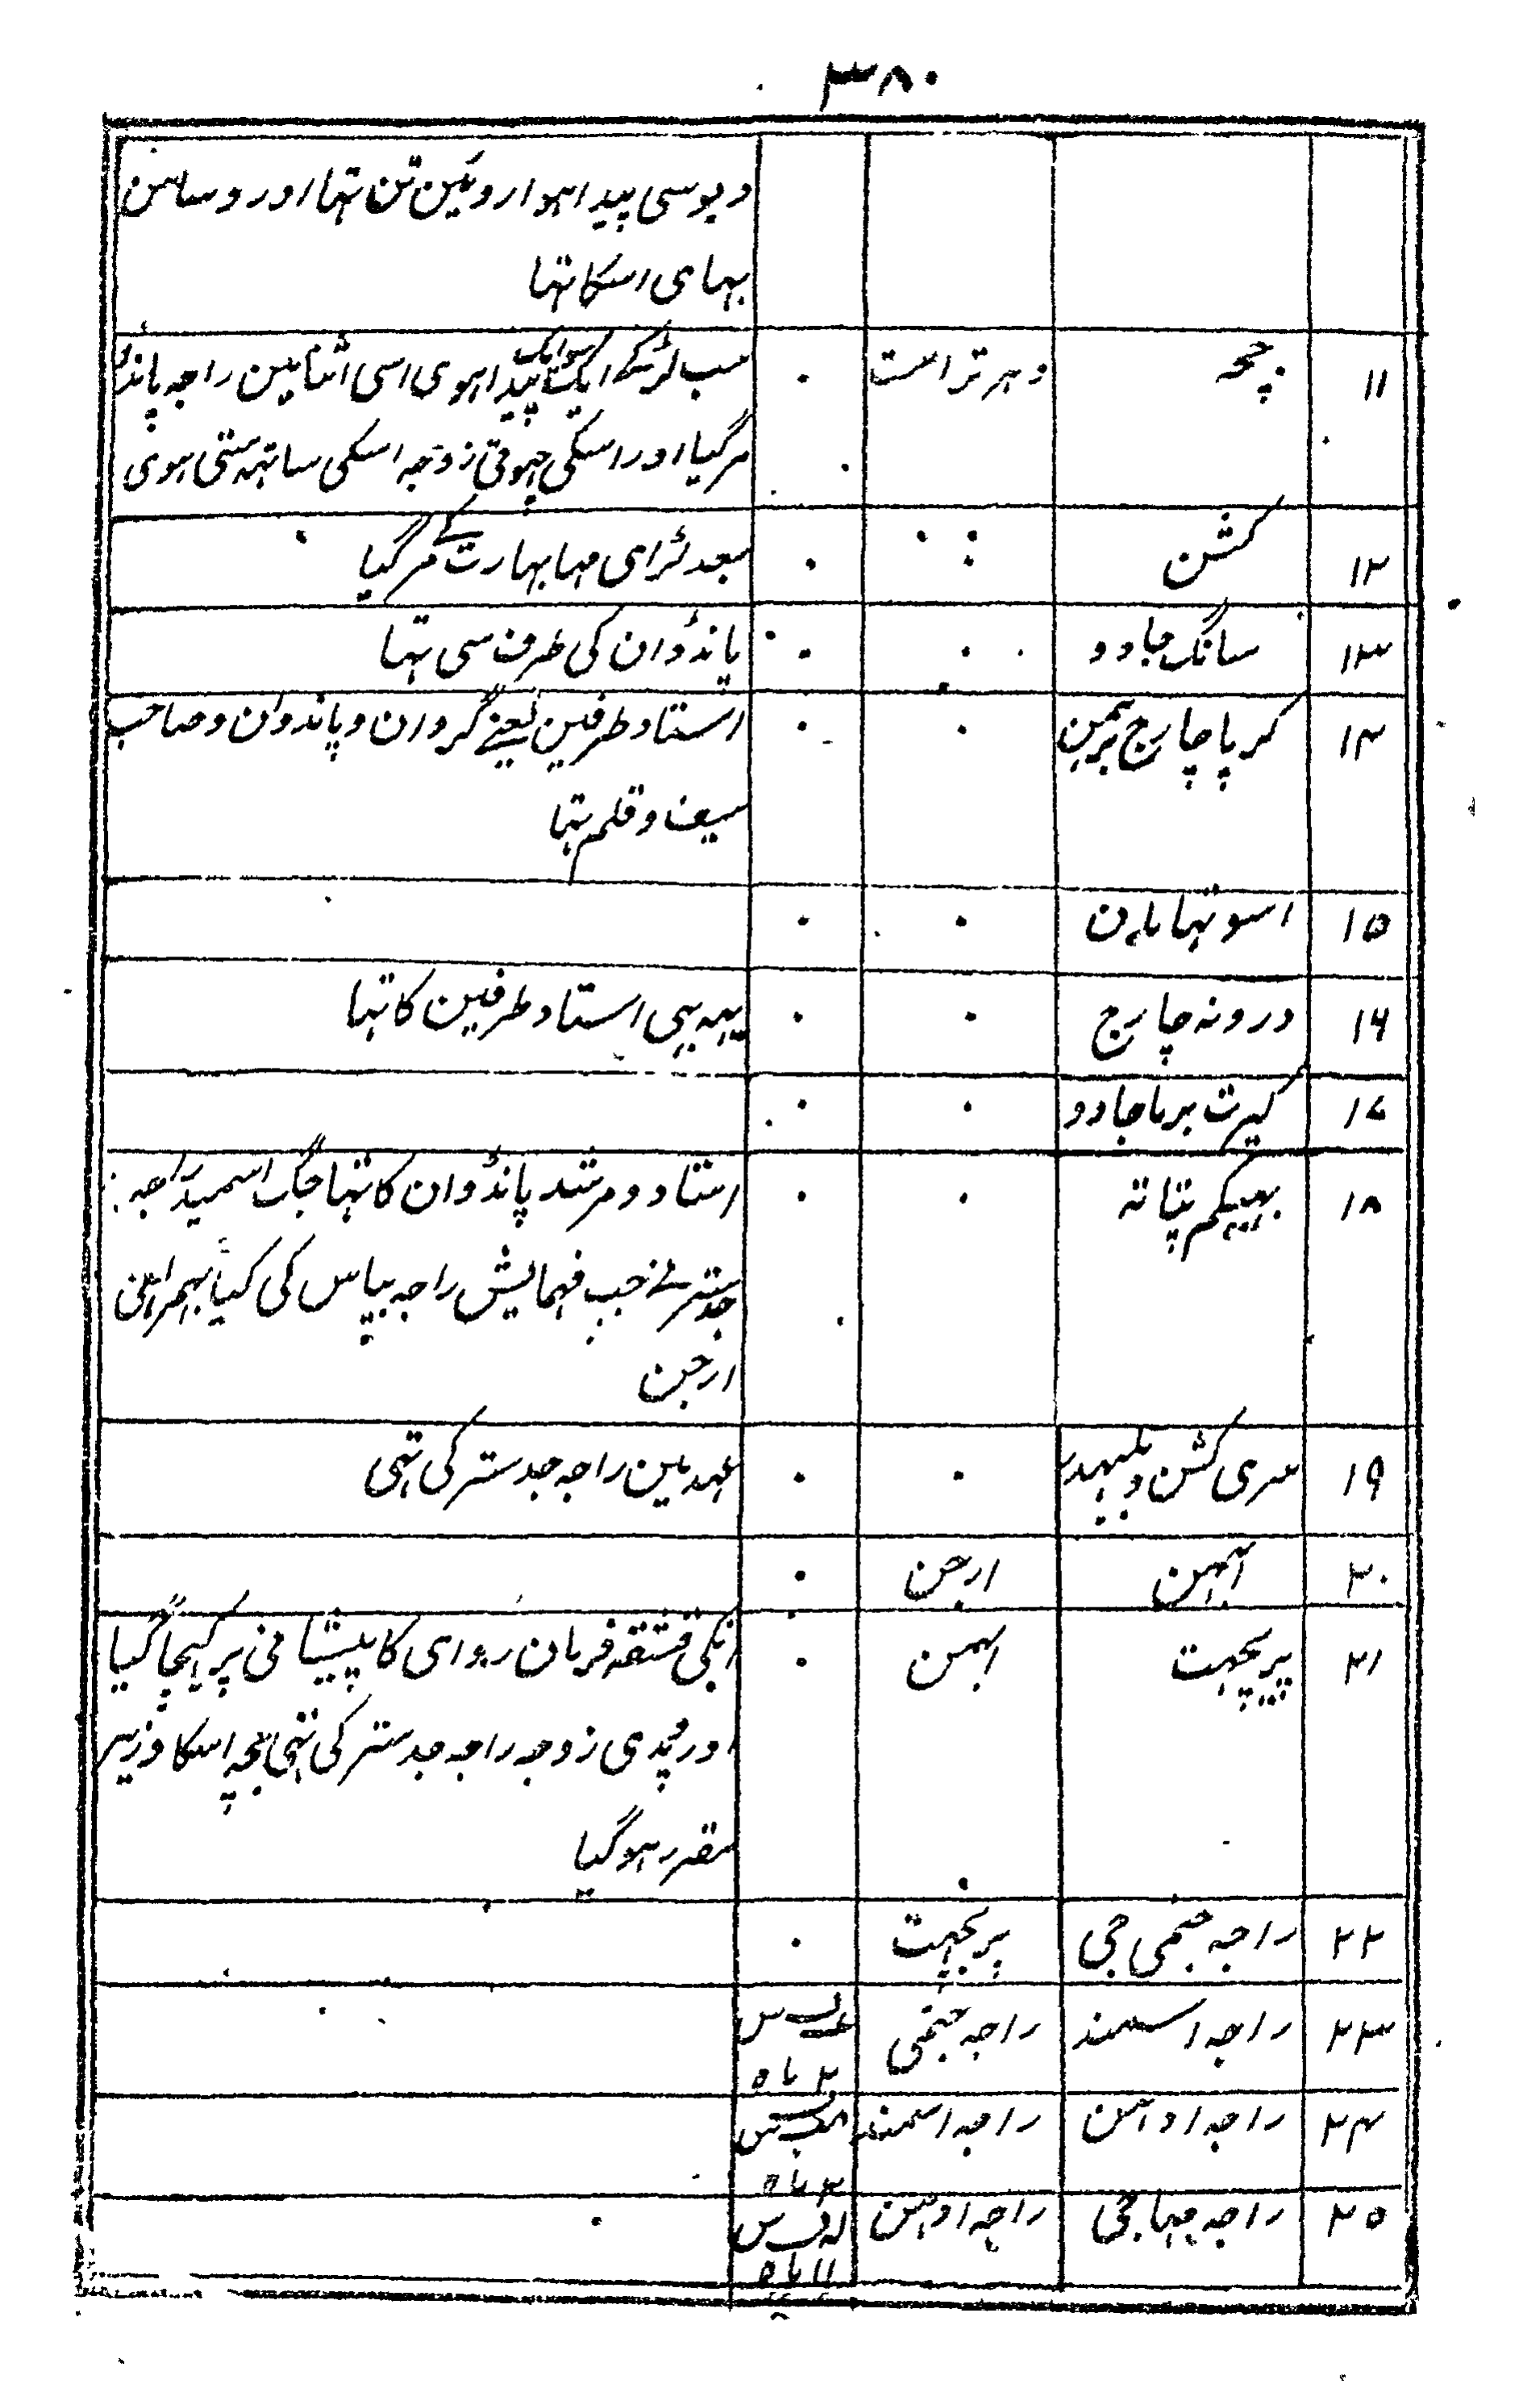 ۳۸۰
دیوسی پیدا ہوا رویین تن تہا اور
بہای اسکا تہا
۱۱ دہرتراست ۰ سب لڑکے ایک سو ایک پیدا ہوی اسی اثنا مین راجہ پانڈ
مر گیا اور اسکی چہوٹی زوجہ اسکی ساتہہ ستی ہوی
۱۲ کشن ۰ ۰ بعد لڑای مہابہارت کے مر گیا
۱۳ سانگ جادو ۰ ۰ پانڈوان کی طرف سی تہا
۱۴ کرپاچارج برہمن ۰ ۰ استاد طرفین یعنے کروان و پاندوان و صاحب
سیف و قلم تہا
۱۵ ۰ ۰
۱۶ درونہ چارج ۰ ۰ یہہ بہی استاد طرفین کا تہا
۱۷ کیرت برما جادو ۰ ۰
۱۸ بہیکم پتاتہ ۰ ۰ استاد و مرشد پانڈوان کا تہا جگ اسمید راجہ
جدہشتر نے حسب فہمایش راجہ بیاس کی کیا
ارجن
۱۹ سری کشن و بلبہدر ۰ ۰ عہد مین راجہ جدستر کی تہی
۲۰ ابہمن ارجن ۰
۲۱ پریچہت ابہمن ۰ انکی قشقہ فرمان روای کا پیشانی پر کہیچا گیا
اور زوجہ راجہ جدستر کی تہی بچہ اسکا وزیر
مقرر ہو گیا
۲۲ راجہ جنمی جی پریچہت ۰
۲۳ راجہ اسمند راجہ جنمی
۲ ماہ
۲۴ راجہ اودہن راجہ اسمند
ماہ
۲۵ راجہ مہاجی راجہ اودہن
۱۱ ماہ